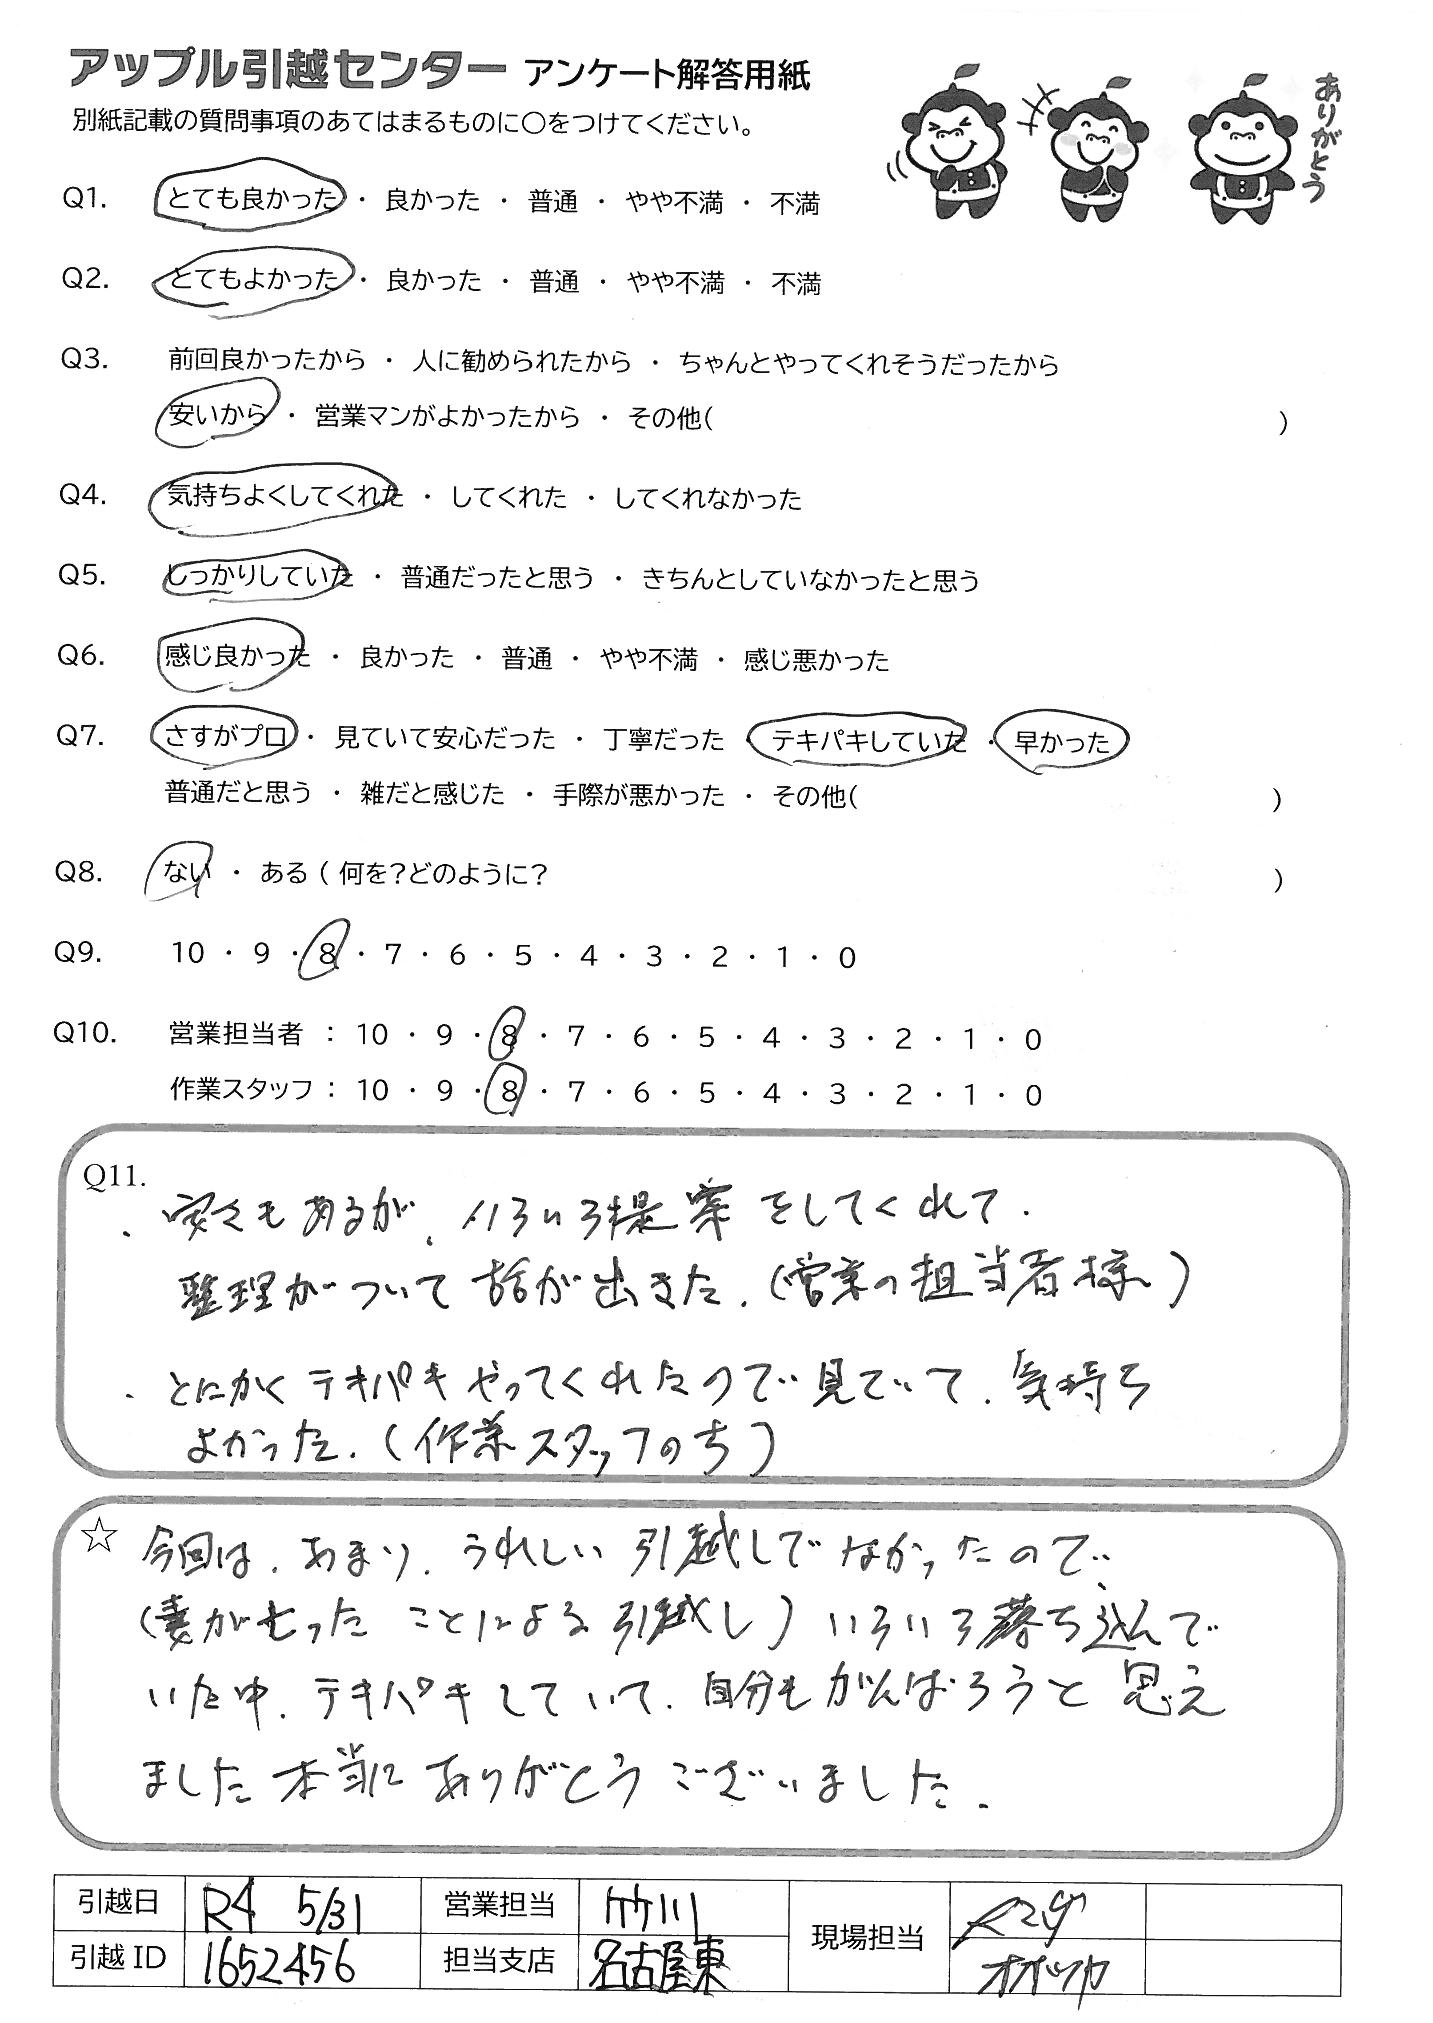 アップル引越センター アンケート解答用紙
別紙記載の質問事項のあてはまるものに○をつけてください。
ありがとう
Q1. とても良かった ・ 良かった ・ 普通 ・ やや不満 ・ 不満
Q2. とてもよかった ・ 良かった ・ 普通 ・ やや不満 ・ 不満
Q3. 前回良かったから ・ 人に勧められたから ・ ちゃんとやってくれそうだったから
安いから ・ 営業マンがよかったから ・ その他( )
Q4. 気持ちよくしてくれた ・ してくれた ・ してくれなかった
Q5. しっかりしていた ・ 普通だったと思う ・ きちんとしていなかったと思う
Q6. 感じ良かった ・ 良かった ・ 普通 ・ やや不満 ・ 感じ悪かった
Q7. さすがプロ ・ 見ていて安心だった ・ 丁寧だった ・ テキパキしていた ・ 早かった
普通だと思う ・ 雑だと感じた ・ 手際が悪かった ・ その他( )
Q8. ない ・ ある ( 何を?どのように? )
Q9. 10 ・ 9 ・ 8 ・ 7 ・ 6 ・ 5 ・ 4 ・ 3 ・ 2 ・ 1 ・ 0
Q10. 営業担当者 : 10 ・ 9 ・ 8 ・ 7 ・ 6 ・ 5 ・ 4 ・ 3 ・ 2 ・ 1 ・ 0
作業スタッフ : 10 ・ 9 ・ 8 ・ 7 ・ 6 ・ 5 ・ 4 ・ 3 ・ 2 ・ 1 ・ 0
Q11.
・安さもあるが、いろいろ提案をしてくれて、
整理がついて話が出きた。(営業の担当者様)
・とにかくテキパキやってくれたので見ていて、気持ち
よかった。(作業スタッフのち)
☆ 今回は、あまり、うれしい引越しでなかったので、
(妻が亡った ことによる引越し) いろいろ落ち込んで
いた中、テキパキしていて、自分もがんばろうと思え
ました 本当に ありがとう ございました。
引越日 R4 5/31 営業担当 竹川 現場担当
引越ID 1652456 担当支店 名古屋東 オオツカ